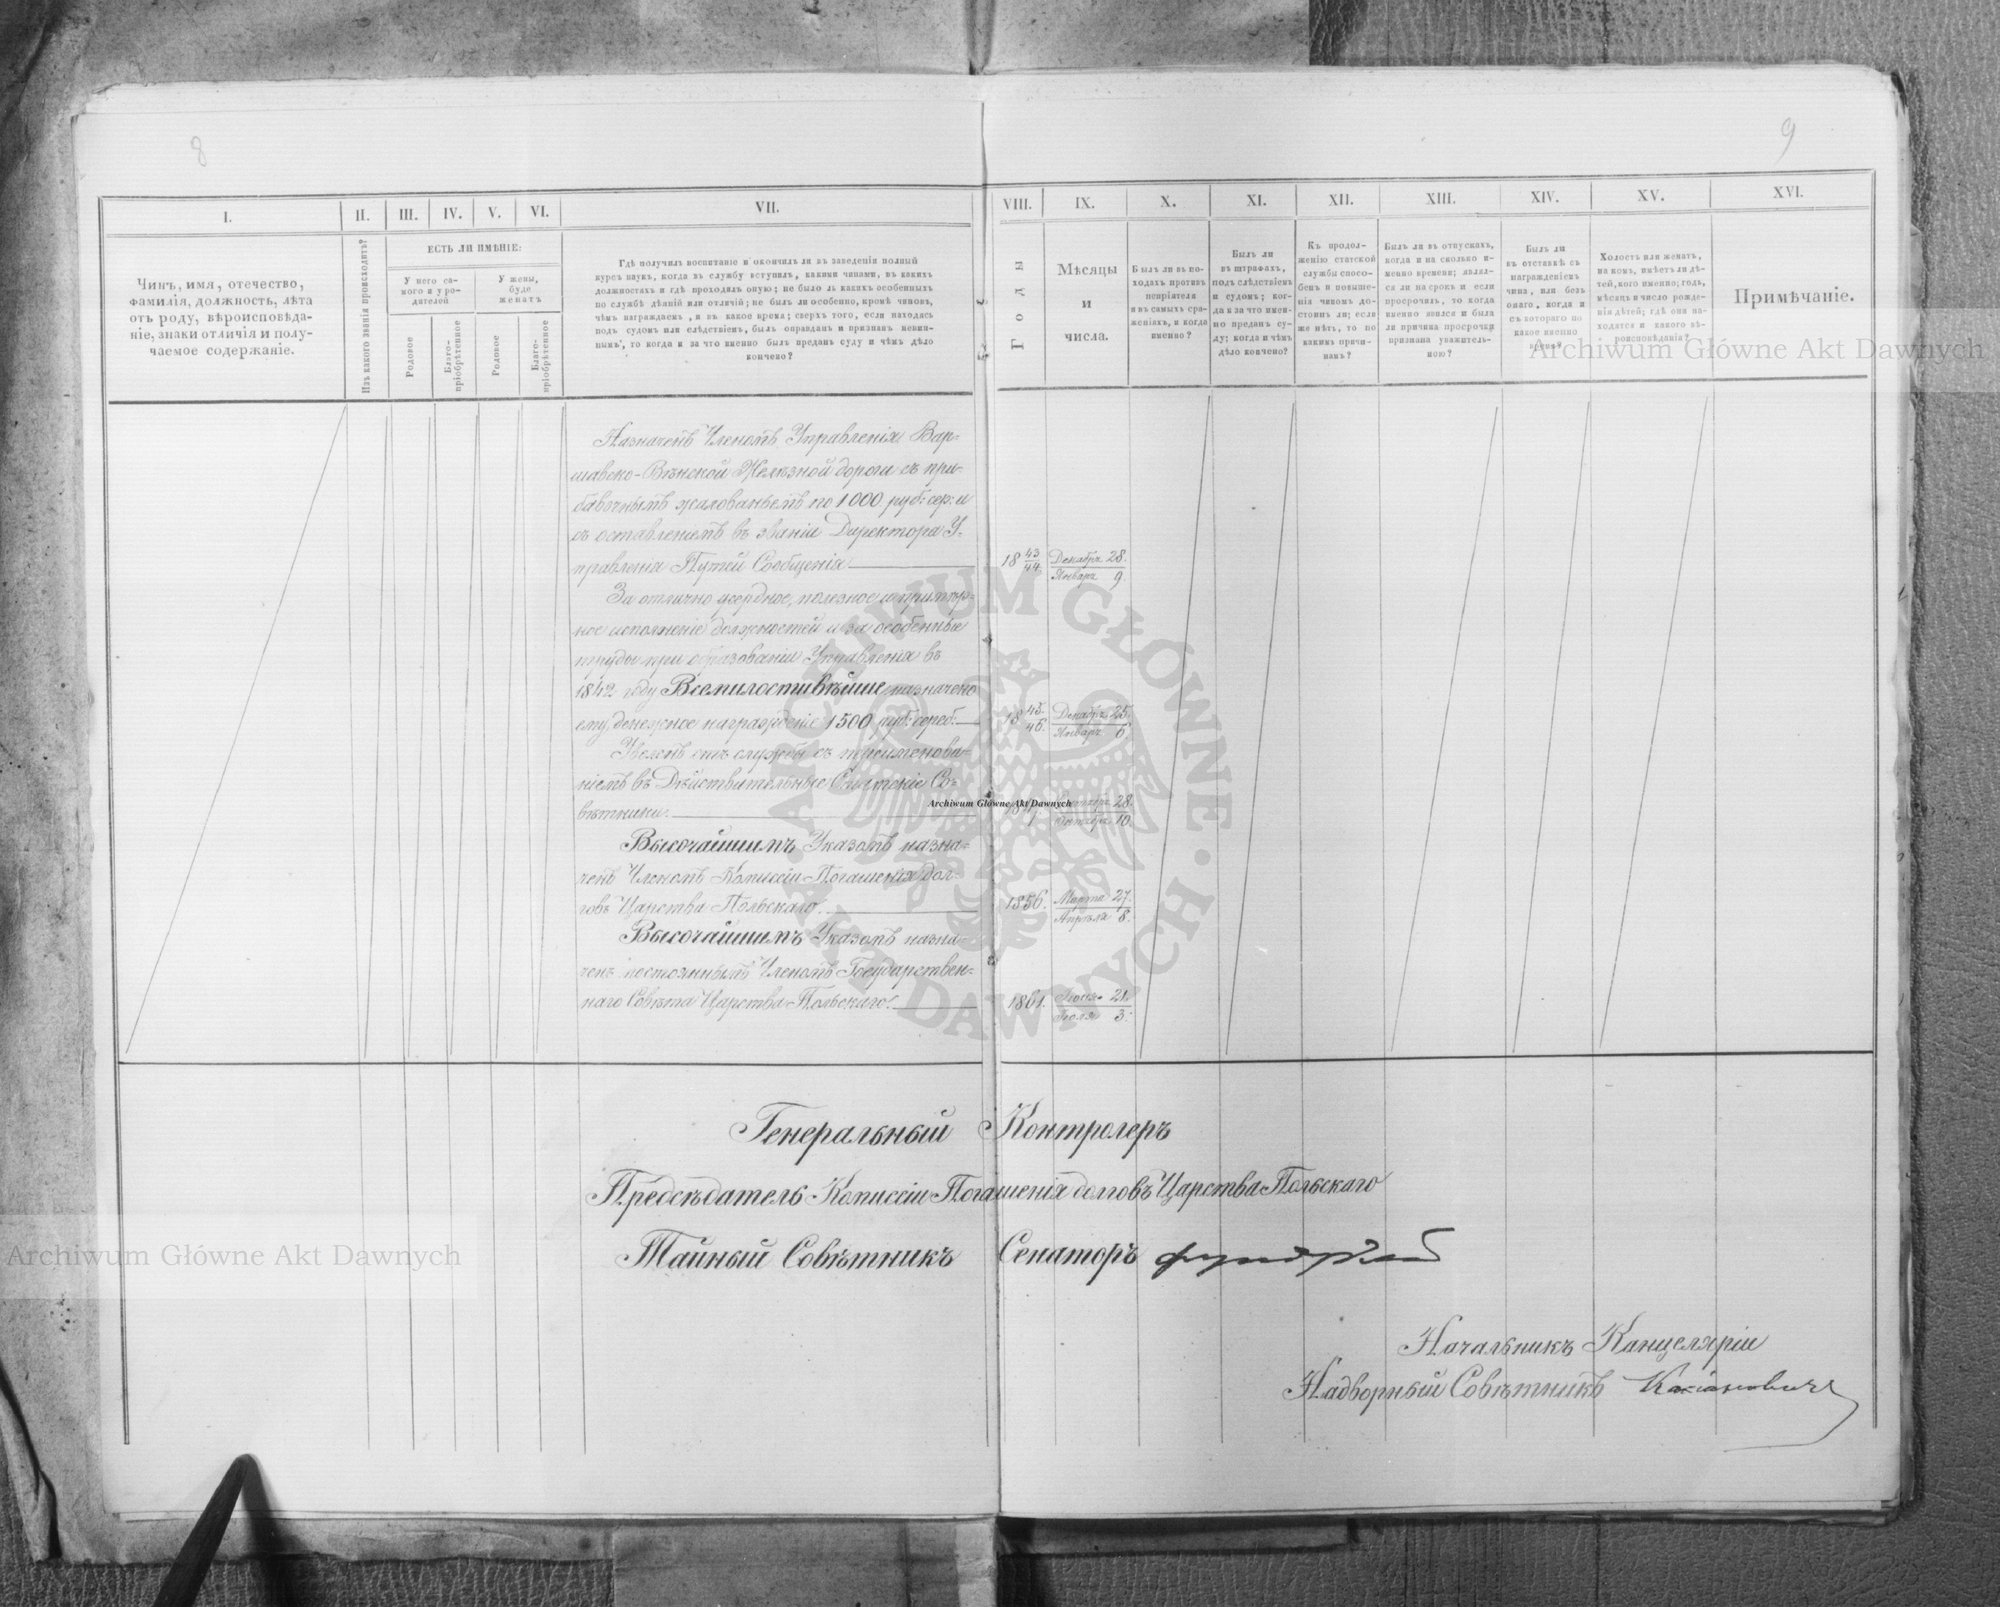 8
9
I.
II.
III.
IV.
V.
VI.
VII.
VIII.
IX.
X.
XI.
XII.
XIII.
XIV.
XV.
XVI.
Чинъ, имя, отечество,
фамилія, должность, лѣта
отъ роду, вѣроисповѣда-
ніе, знаки отличія и полу-
чаемое содержаніе.
Изъ какого званія происходитъ?
ЕСТЬ ЛИ ИМѢНІЕ:
У него са-
мого и у ро-
дителей
У жены,
буде
женатъ
Родовое
Благо-
пріобрѣтенное
Родовое
Благо-
пріобрѣтенное
Гдѣ получилъ воспитаніе и окончилъ ли въ заведеніи полный
курсъ наукъ, когда въ службу вступилъ, какими чинами, въ какихъ
должностяхъ и гдѣ проходилъ оную; не было ль какихъ особенныхъ
по службѣ дѣяній или отличій; не былъ ли особенно, кромѣ чиновъ,
чѣмъ награждаемъ, и въ какое время; сверхъ того, если находясь
подъ судомъ или слѣдствіемъ, былъ оправданъ и признанъ невин-
нымъ, то когда и за что именно былъ преданъ суду и чѣмъ дѣло
кончено?
Годы
Мѣсяцы
и
числа.
Былъ ли въ по-
ходахъ противъ
непріятеля
и въ самыхъ сра-
женіяхъ, и когда
именно?
Былъ ли
въ штрафахъ,
подъ слѣдствіемъ
и судомъ; ког-
да и за что имен-
но преданъ су-
ду; когда и чѣмъ
дѣло кончено?
Къ продол-
женію статской
службы спосо-
бенъ и повыше-
нія чиномъ до-
стоинъ ли; если
же нѣтъ, то по
какимъ причи-
намъ?
Былъ ли въ отпускахъ,
когда и на сколько и-
менно времени; являл-
ся ли на срокъ и если
просрочилъ, то когда
именно явился и была
ли причина просрочки
признана уважитель-
ною?
Былъ ли
въ отставкѣ съ
награжденіемъ
чина, или безъ
онаго, когда и
съ котораго по
какое именно
время?
Холостъ или женатъ,
на комъ, имѣетъ ли дѣ-
тей, кого именно; годъ,
мѣсяцъ и число рожде-
нія дѣтей; гдѣ они на-
ходятся и какого вѣ-
роисповѣданія?
Примѣчаніе.
Archiwum Główne Akt Dawnych
Назначенъ Членомъ Управленія Вар-
шавско-Вѣнской Желѣзной дороги съ при-
бавочнымъ жалованьемъ по 1000 руб: сер: и
съ оставленіемъ въ званіи Директора У-
правленія Путей Сообщенія
18 43/44
Декабря 28.
Января 9.
За отлично усердное, полезное и примѣр-
ное исполненіе должностей и за особенные
труды при образованіи Управленія въ
1842 году Всемилостивѣйше назначено
ему денежное награжденіе 1500 руб: сереб:
18 45/46.
Декабря 25.
Января 6.
Уволенъ отъ службы съ переименова-
ніемъ въ Дѣйствительные Статскіе Со-
вѣтники.
Archiwum Główne Akt Dawnych
Сентября 28.
Октября 10.
Высочайшимъ Указомъ назна-
ченъ Членомъ Комиссіи Погашенія дол-
говъ Царства Польскаго.
1856.
Марта 27.
Апрѣля 8.
Высочайшимъ Указомъ назна-
ченъ постояннымъ Членомъ Государствен-
наго Совѣта Царства Польскаго.
1861.
Іюня 21.
Іюля 3.
ARCHIWUM GŁÓWNE · AKT DAWNYCH ·
Генеральный Контролеръ
Предсѣдатель Комиссіи Погашенія долговъ Царства Польскаго
Тайный Совѣтникъ Сенаторъ
Archiwum Główne Akt Dawnych
Начальникъ Канцеляріи
Надворный Совѣтникъ